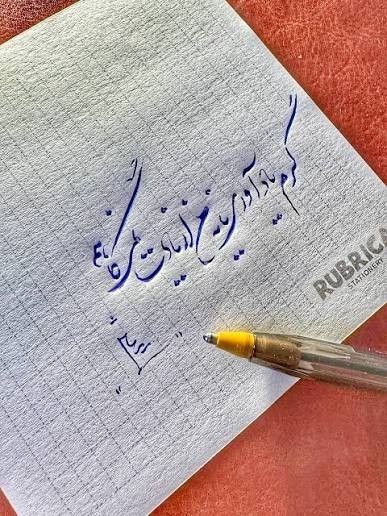 گرم یاد آوری یا نه من از یادت نمی کاهم
RUBRICA
STATIONERY